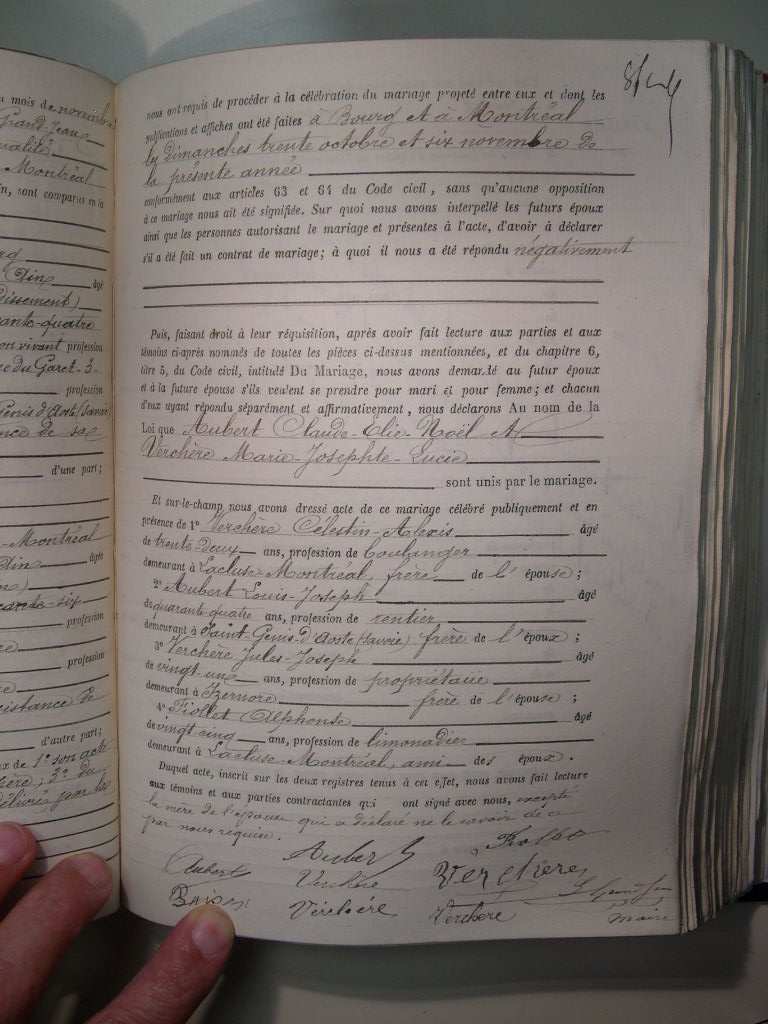 u mois de novembre
Grand-Jean
ualité
Montréal
in, sont comparus en la
rg
Ain
âgé
dissement)
ante-quatre
on vivant profession
ce du Garet-3-
profession
Genis d'Aoste (Savoie)
nce de sa
d'une part;
-Montréal
Ain
âgée
ine)
ante-six
profession
profession
istance de
d'autre part;
ux de 1° son acte
ère, 3° du
délivrés par les
nous ont requis de procéder à la célébration du mariage projeté entre eux et dont les
publications et affiches ont été faites à Bourg et à Montréal
les dimanches trente octobre et six novembre de
la présente année
conformément aux articles 63 et 64 du Code civil, sans qu'aucune opposition
à ce mariage nous ait été signifiée. Sur quoi nous avons interpellé les futurs époux
ainsi que les personnes autorisant le mariage et présentes à l'acte, d'avoir à déclarer
s'il a été fait un contrat de mariage; à quoi il nous a été répondu négativement
Puis, faisant droit à leur réquisition, après avoir fait lecture aux parties et aux
témoins ci-après nommés de toutes les pièces ci-dessus mentionnées, et du chapitre 6,
titre 5, du Code civil, intitulé Du Mariage, nous avons demandé au futur époux
et à la future épouse s'ils veulent se prendre pour mari et pour femme; et chacun
d'eux ayant répondu séparément et affirmativement, nous déclarons Au nom de la
Loi que Aubert Claude-Elie-Noël et
Verchère Marie-Josephte-Lucie
sont unis par le mariage.
Et sur-le-champ nous avons dressé acte de ce mariage célébré publiquement et en
présence de 1° Verchère Célestin-Alexis âgé
de trente deux ans, profession de boulanger
demeurant à Lacluse-Montréal, frère de l'épouse;
2° Aubert Louis-Joseph âgé
de quarante quatre ans, profession de rentier
demeurant à Saint-Genis-d'Aoste (Savoie) frère de l'époux;
3° Verchère Jules-Joseph âgé
de vingt-une ans, profession de propriétaire
demeurant à Izernore frère de l'épouse;
4° Fiollet Alphonse âgé
de vingt cinq ans, profession de limonadier
demeurant à Lacluse-Montréal, ami des époux.
Duquel acte, inscrit sur les deux registres tenus à cet effet, nous avons fait lecture
aux témoins et aux parties contractantes qui ont signé avec nous, excepté
la mère de l'épouse qui a déclaré ne le savoir de ce
par nous requise.
Aubert
Aubert
Verchère
Verchère
Verchère
Verchère
maire